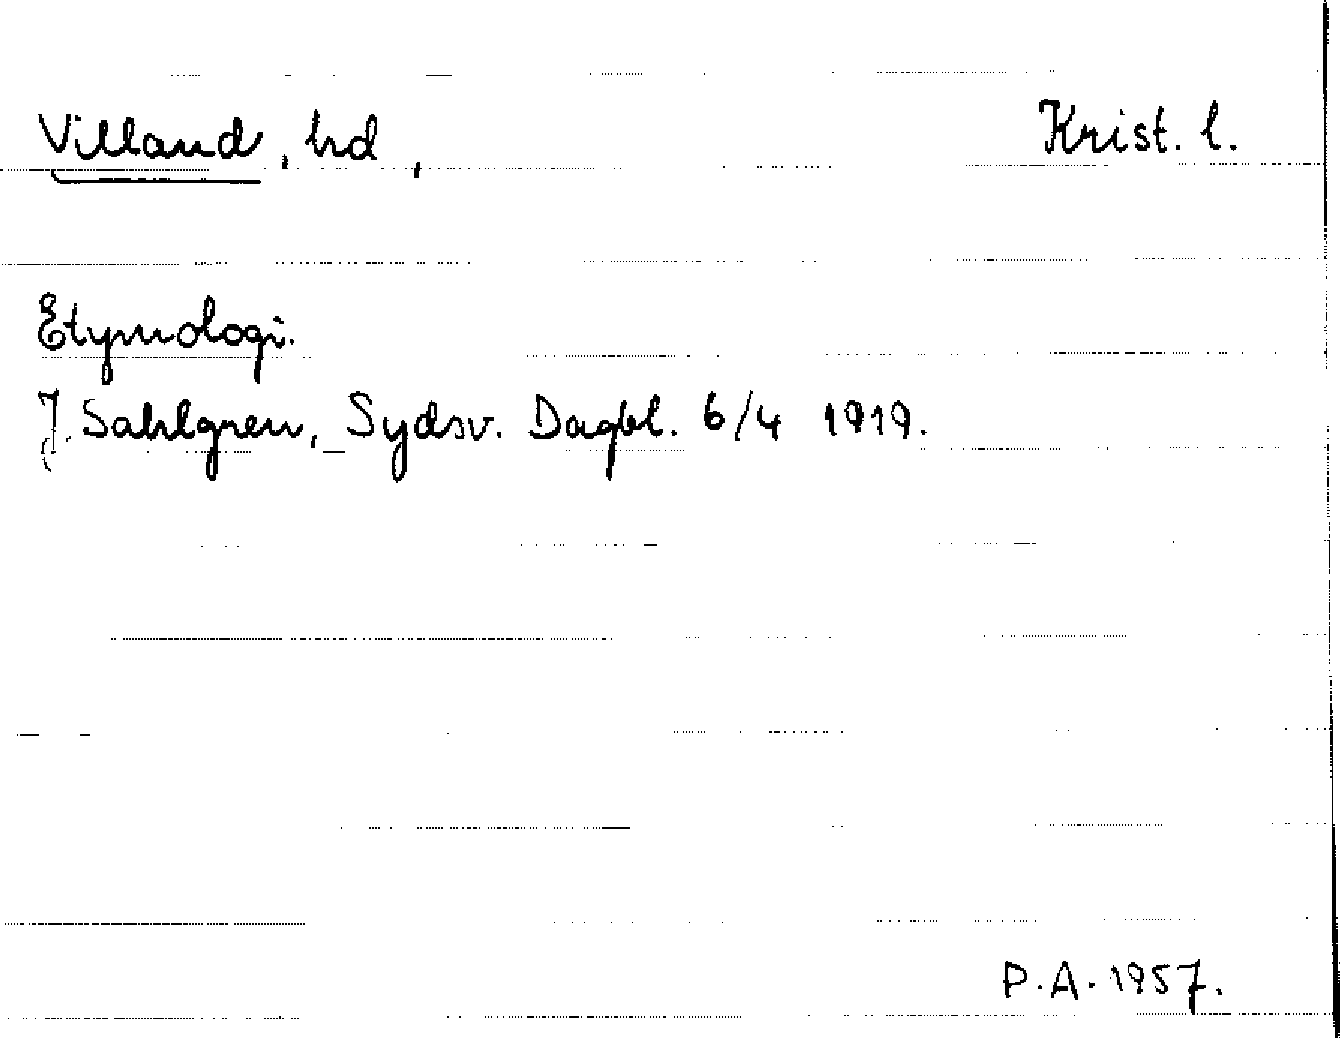 Villand, hd, Krist. l.
Etymologi.
J. Sahlgren, Sydsv. Dagbl. 6/4 1919.
P.A. 1957.